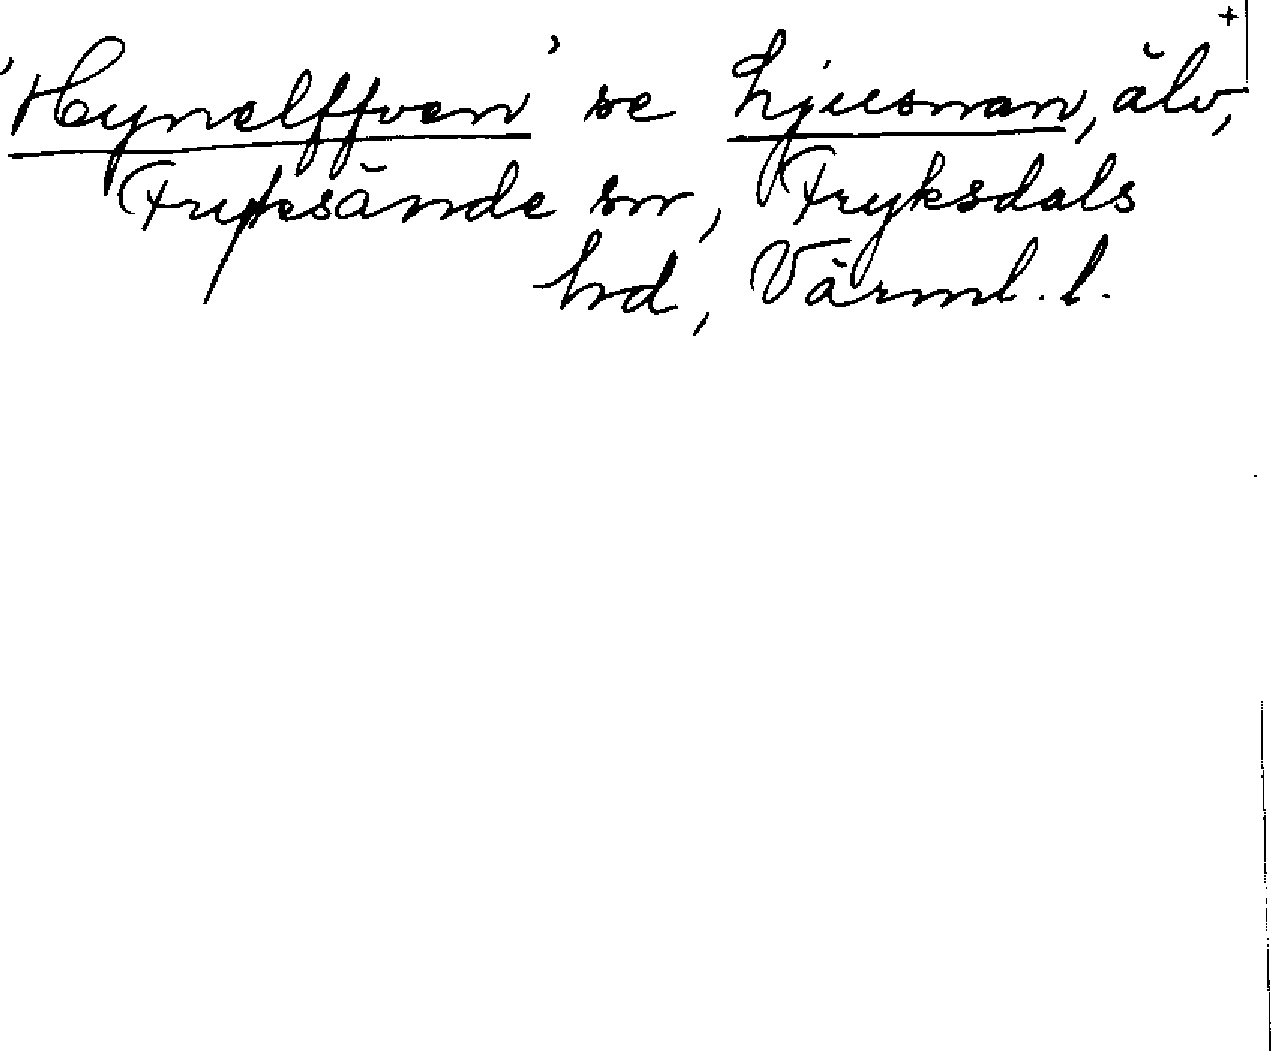 'Hynelffven' se Ljusnan, älv,
Fryksände sn, Fryksdals
hd, Värml. l.